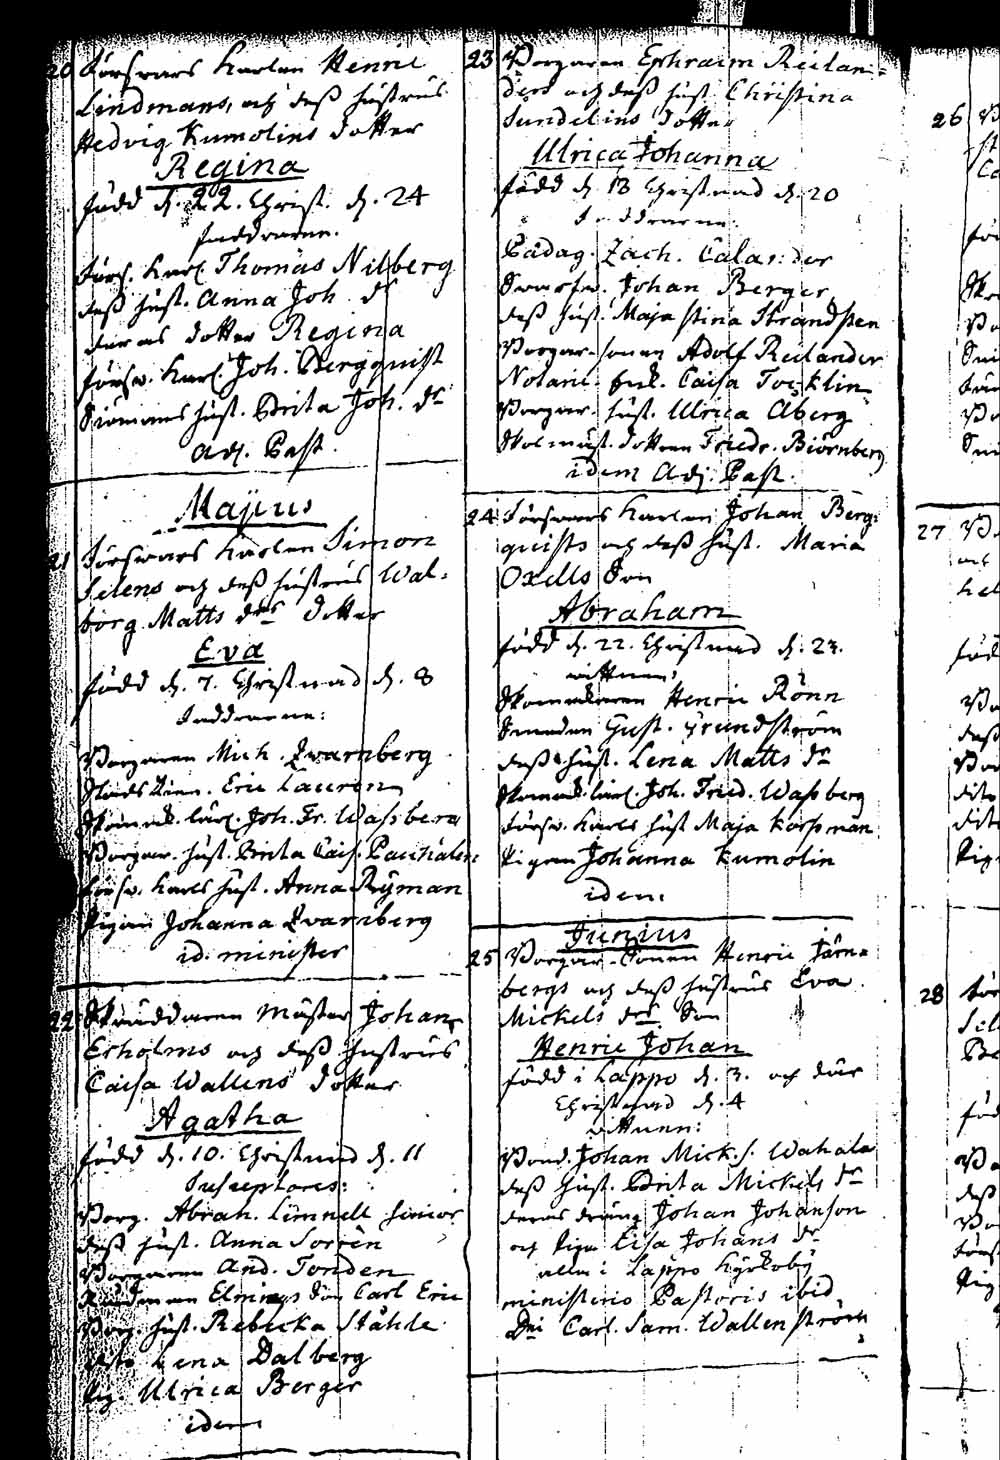 20 Försvars Karlen Henric
Lindmans, och deß hustrus
Hedvig Kumolins dotter
Regina
född d. 22. Christ. d. 24
Faddrarne.
Försv. Karl. Thomas Nilberg
deß hust. Anna Joh. dr
deras dotter Regina
försv. Karl. Joh. Bergquist
Siömans hust. Brita Joh. dr
Adj. Past.
Majus
21 Försvars Karlen Simon
Selens och deß hustrus Wal-
borg Matts drs dotter
Eva
född d. 7. Christnad d. 8
Faddrarne:
Borgaren Mich. Qvarnberg
Eric Lauren
Joh. Fr. Waßberg
Borgar. hust. Brita Cais. Pacchalen
försv. Karls hust. Anna Ryman
Pigan Johanna Qvarnberg
id. minister
22 Skräddaren Mäster Johan
Erholms och deß hustrus
Caisa Wallens dotter
Agatha
född d. 10. Christnad d. 11
Susceptores:
Borg. Abrah. Limnell senior
deß hust. Anna Sorrèn
Borgaren And. Tonden
son Carl Eric
Borg. hust. Rebecka Ståhle
dito Lena Dalberg
Pig. Ulrica Berger
idem
23 Borgaren Ephraim Reilan-
ders och deß hust. Christina
Sundelins dotter
Ulrica Johanna
född d. 18 Christnad d. 20
Faddrarne.
Pädag. Zach. Calander
Svarfv. Johan Berger
deß hust. Maja Stina Strandsten
Borgar-sonen Adolf Reilander
Notarii fru. Caisa Tocklin
Borgar. hust. Ulrica Åberg
Skolmäst. dottren Friedr. Biörnberg
idem Adj. Past.
24 Försvars Karlen Johan Berg-
quists och deß hust. Maria
Oxells Son
Abraham
född d. 22. Christnad d. 23.
vittnen:
Skomakaren Henric Rönn
Smeden Gust. Grundström
deß hust. Lena Matts dr
Skomak. lärl. Joh. Fried. Waßberg
försv. Karls hust Maja Korßman
Pigan Johanna Kumolin
idem.
Junius
25 Borgar-Sonen Henric Järn-
bergs och deß hustrus Eva
Mickels drs Son
Henric Johan
född i Lappo d. 3. och där
Christnad d. 4
vittnen:
Bond. Johan Mick. s. Wahala
deß hust. Brita Mickels dr
deras dräng Johan Johanson
och Piga Lisa Johans dr
alla i Lappo Kyrkoby
ministerio Pastoris ibid
Dni Carl. Sam. Wallenström
26
27
28